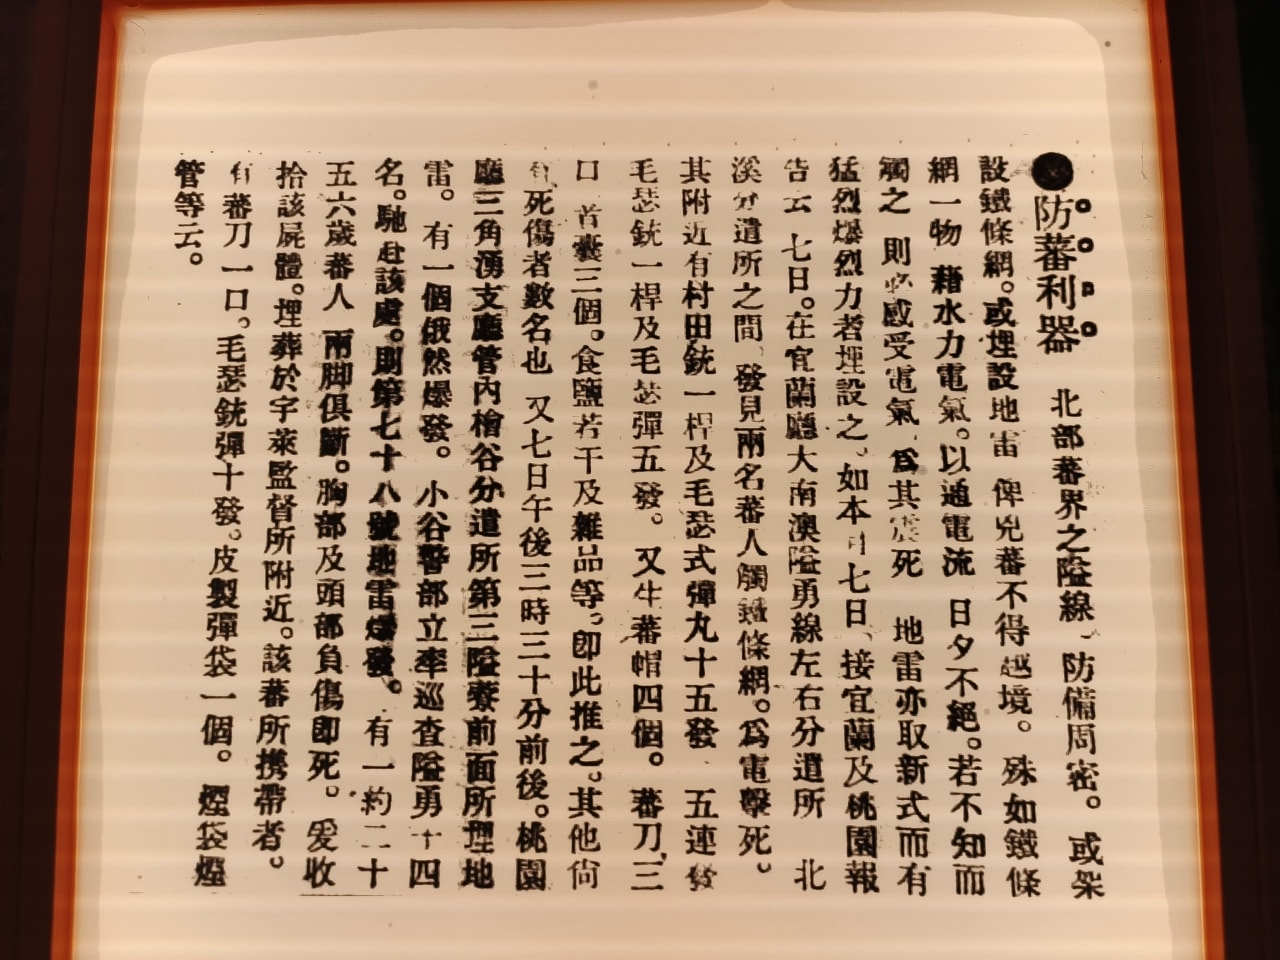 ●防蕃利器　北部蕃界之隘線、防備周密。或架
設鐵條網。或埋設地雷　俾兇蕃不得越境。殊如鐵條
網一物　藉水力電氣。以通電流　日夕不絕。若不知而
觸之　則必感受電氣、爲其震死　地雷亦取新式而有
猛烈爆烈力者埋設之。如本月七日、接宜蘭及桃園報
告云　七日。在宜蘭廳大南澳隘勇線左右分遣所　北
溪分遣所之間、發見兩名蕃人觸鐵條網。爲電擊死。
其附近有村田銃一桿及毛瑟式彈丸十五發、五連發
毛瑟銃一桿及毛瑟彈五發。又生蕃帽四個。蕃刀三
口　首囊三個。食鹽若干及雜品等。卽此推之。其他尙
有死傷者數名也　又七日午後三時三十分前後。桃園
廳三角湧支廳管內檜谷分遣所第三隘寮前面所埋地
雷。有一個俄然爆發。小谷警部立率巡查隘勇十四
名。馳赴該處。則第七十八號地雷爆發。有一約二十
五六歲蕃人　兩脚俱斷。胸部及頭部負傷卽死。爰收
拾該屍體。埋葬於宇萊監督所附近。該蕃所携帶者。
有蕃刀一口。毛瑟銃彈十發。皮製彈袋一個。煙袋煙
管等云。